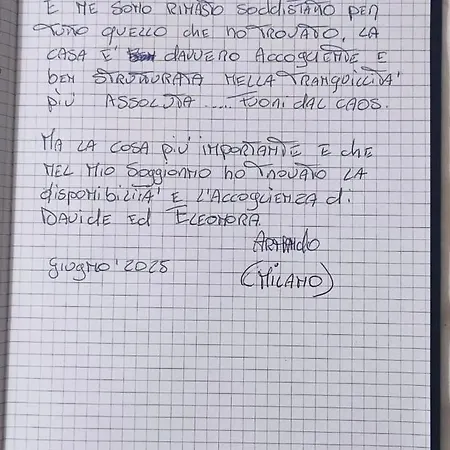 E NE SONO RIMASTO SODDISFATTO PER
TUTTO QUELLO CHE HO TROVATO, LA
CASA E' DAVVERO ACCOGLIENTE E
BEN STRUTTURATA NELLA TRANQUILLITA'
PIÙ ASSOLUTA ..... FUORI DAL CAOS.
MA LA COSA PIU' IMPORTANTE E CHE
NEL MIO SOGGIORNO HO TROVATO LA
DISPONIBILITA' E L'ACCOGLIENZA di
DAVIDE ED ELEONORA.
GIUGNO '2025
(MILANO)